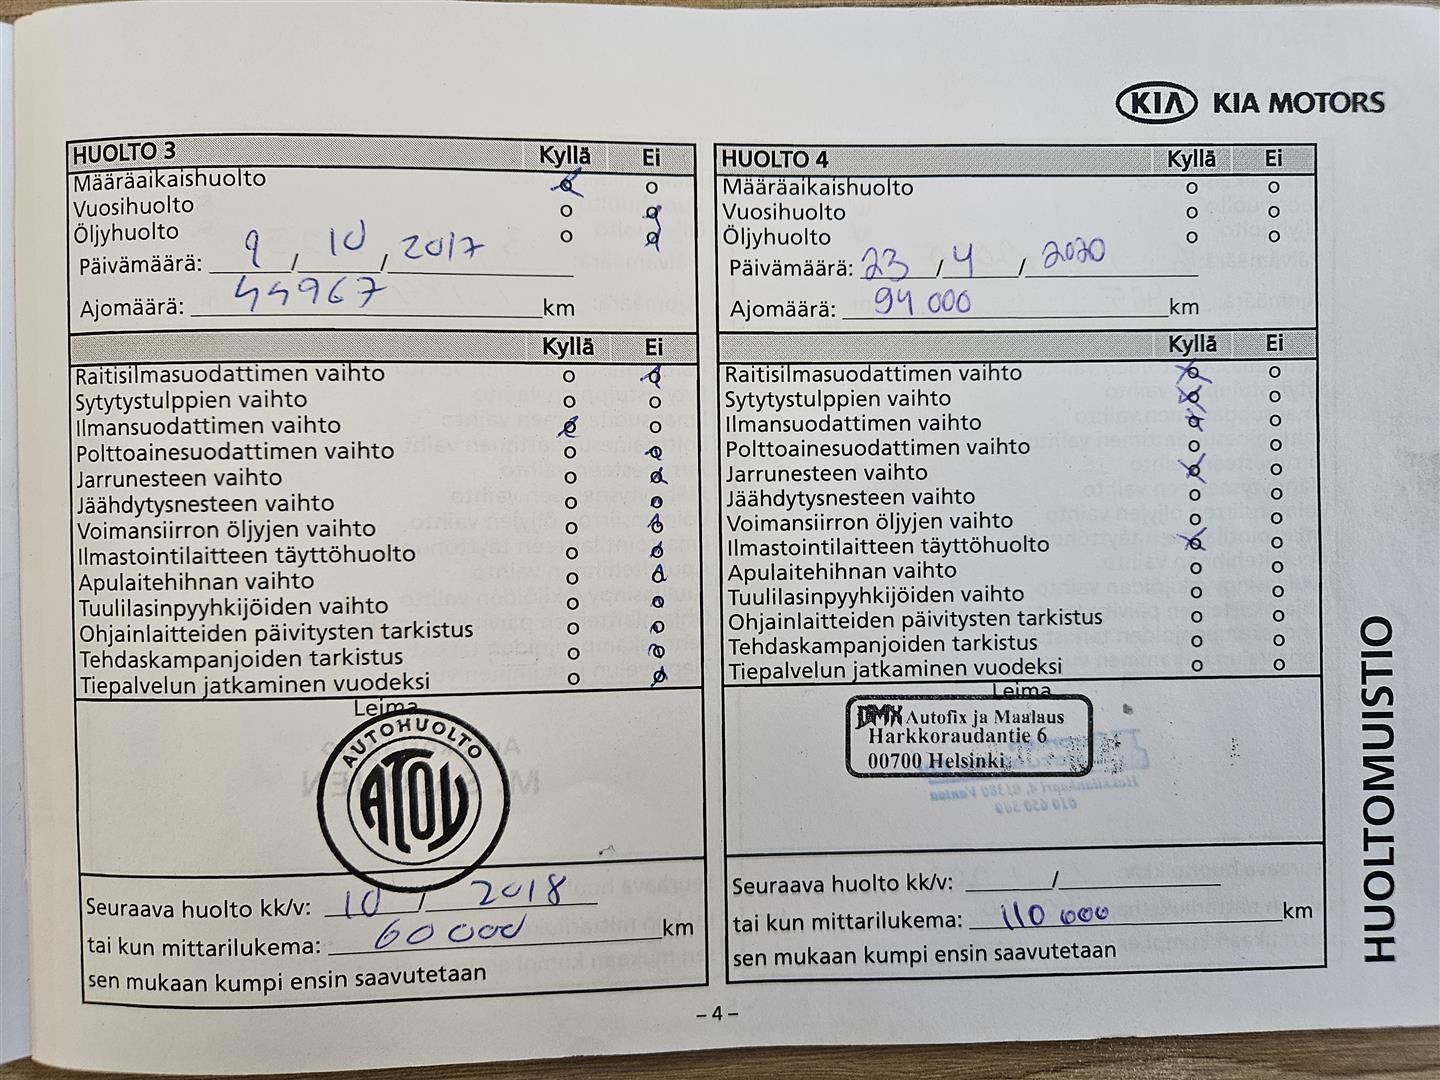 KIA KIA MOTORS
HUOLTO 3 Kyllä Ei
Määräaikaishuolto o o
Vuosihuolto o o
Öljyhuolto o o
Päivämäärä: 9 / 10 / 2017
Ajomäärä: 44967 km
Kyllä Ei
Raitisilmasuodattimen vaihto o o
Sytytystulppien vaihto o o
Ilmansuodattimen vaihto o o
Polttoainesuodattimen vaihto o o
Jarrunesteen vaihto o o
Jäähdytysnesteen vaihto o o
Voimansiirron öljyjen vaihto o o
Ilmastointilaitteen täyttöhuolto o o
Apulaitehihnan vaihto o o
Tuulilasinpyyhkijöiden vaihto o o
Ohjainlaitteiden päivitysten tarkistus o o
Tehdaskampanjoiden tarkistus o o
Tiepalvelun jatkaminen vuodeksi o o
Leima
AUTOHUOLTO
ATOY
Seuraava huolto kk/v: 10 / 2018
tai kun mittarilukema: 60 000 km
sen mukaan kumpi ensin saavutetaan
HUOLTO 4 Kyllä Ei
Määräaikaishuolto o o
Vuosihuolto o o
Öljyhuolto o o
Päivämäärä: 23 / 4 / 2020
Ajomäärä: 94 000 km
Kyllä Ei
Raitisilmasuodattimen vaihto o o
Sytytystulppien vaihto o o
Ilmansuodattimen vaihto o o
Polttoainesuodattimen vaihto o o
Jarrunesteen vaihto o o
Jäähdytysnesteen vaihto o o
Voimansiirron öljyjen vaihto o o
Ilmastointilaitteen täyttöhuolto o o
Apulaitehihnan vaihto o o
Tuulilasinpyyhkijöiden vaihto o o
Ohjainlaitteiden päivitysten tarkistus o o
Tehdaskampanjoiden tarkistus o o
Tiepalvelun jatkaminen vuodeksi o o
Leima
DMX Autofix ja Maalaus
Harkkoraudantie 6
00700 Helsinki
Seuraava huolto kk/v: /
tai kun mittarilukema: 110 000 km
sen mukaan kumpi ensin saavutetaan
HUOLTOMUISTIO
– 4 –